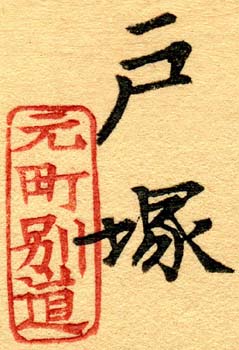 戸塚
元町別道